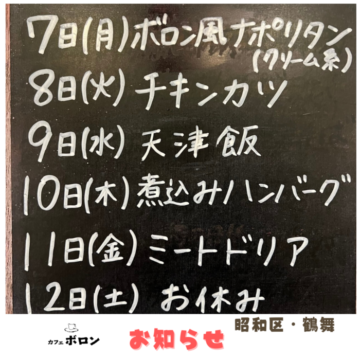 7日(月)ボロン風ナポリタン
(クリーム系)
8日(火)チキンカツ
9日(水)天津飯
10日(木)煮込みハンバーグ
11日(金)ミートドリア
12日(土)お休み
昭和区・鶴舞
カフェ ボロン
お知らせ